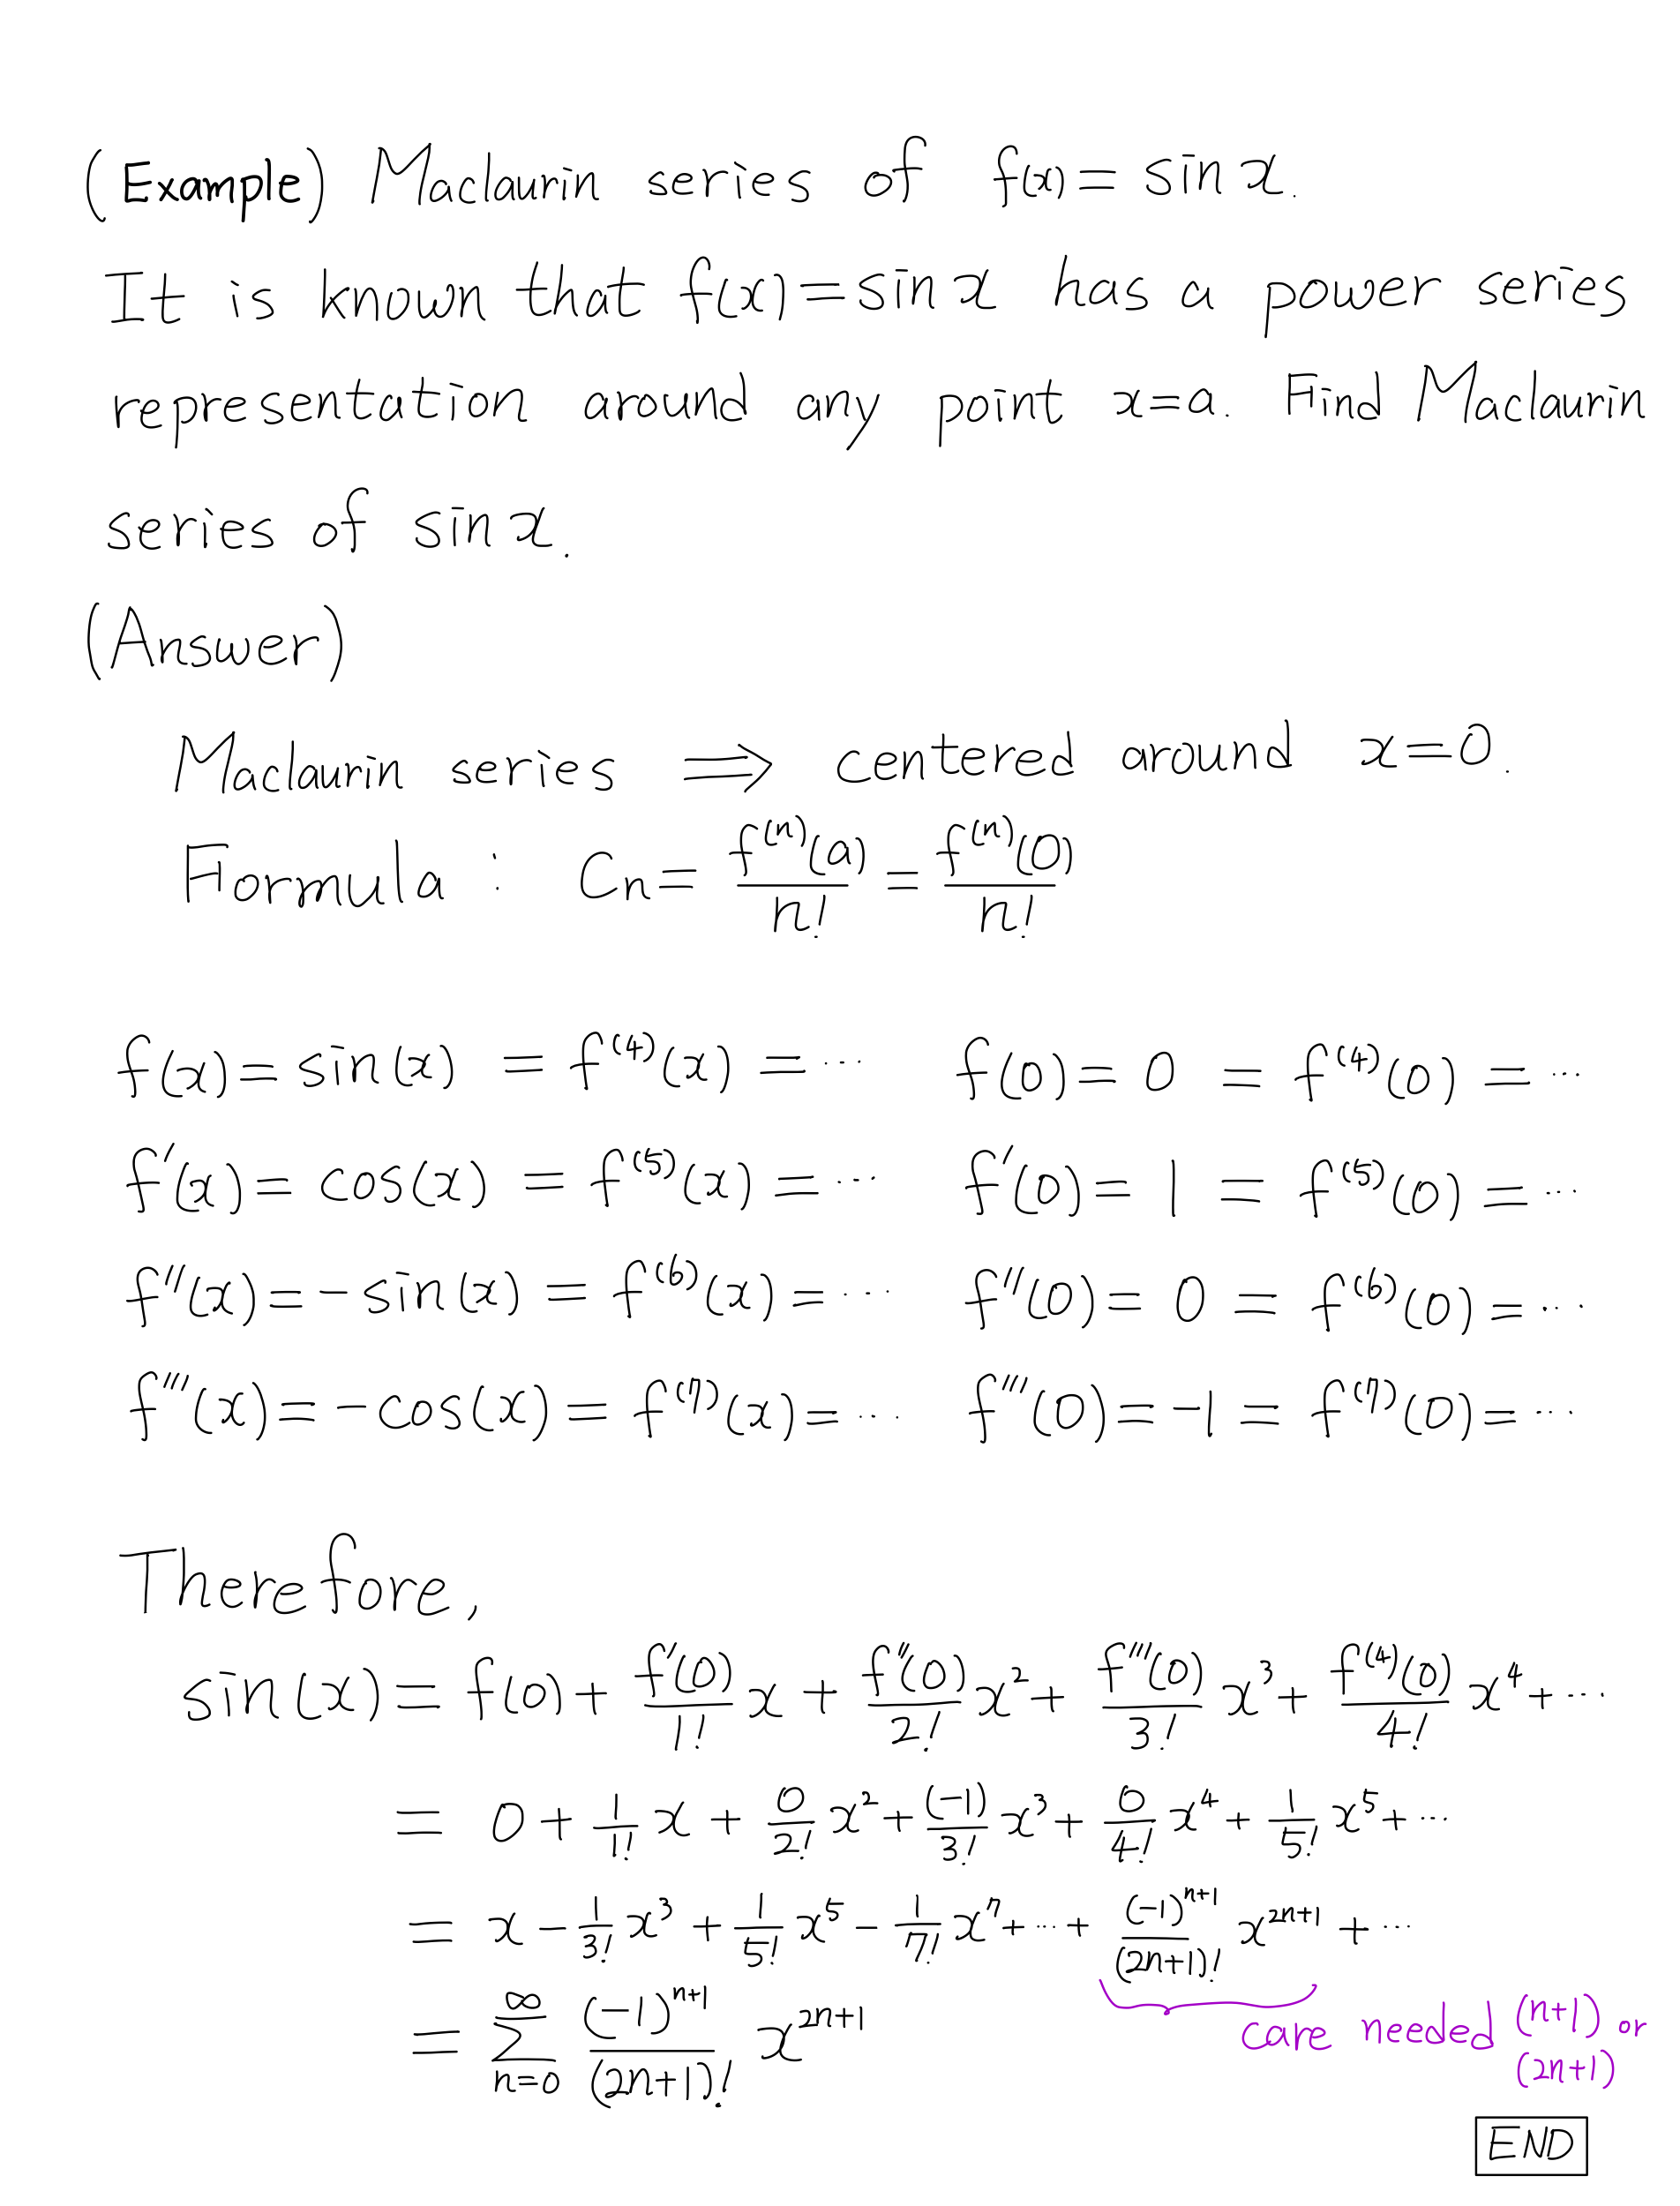 (Example) Maclaurin series of f(x) = sin x.
It is known that f(x) = sin x has a power series
representation around any point x=a. Find Maclaurin
series of sin x.
(Answer)
Maclaurin series ⟹ centered around x=0.
Formula : Cn = f^(n)(a)/n! = f^(n)(0)/n!
f(x) = sin(x) = f^(4)(x) = ⋯ f(0) = 0 = f^(4)(0) = ⋯
f'(x) = cos(x) = f^(5)(x) = ⋯ f'(0) = 1 = f^(5)(0) = ⋯
f''(x) = -sin(x) = f^(6)(x) = ⋯ f''(0) = 0 = f^(6)(0) = ⋯
f'''(x) = -cos(x) = f^(7)(x) = ⋯ f'''(0) = -1 = f^(7)(0) = ⋯
Therefore,
sin(x) = f(0) + f'(0)/1! x + f''(0)/2! x^2 + f'''(0)/3! x^3 + f^(4)(0)/4! x^4 + ⋯
= 0 + 1/1! x + 0/2! x^2 + (-1)/3! x^3 + 0/4! x^4 + 1/5! x^5 + ⋯
= x - 1/3! x^3 + 1/5! x^5 - 1/7! x^7 + ⋯ + (-1)^(n+1)/(2n+1)! x^(2n+1) + ⋯
= ∑_{n=0}^{∞} (-1)^(n+1)/(2n+1)! x^(2n+1)
care needed (n+1) or
(2n+1)
END